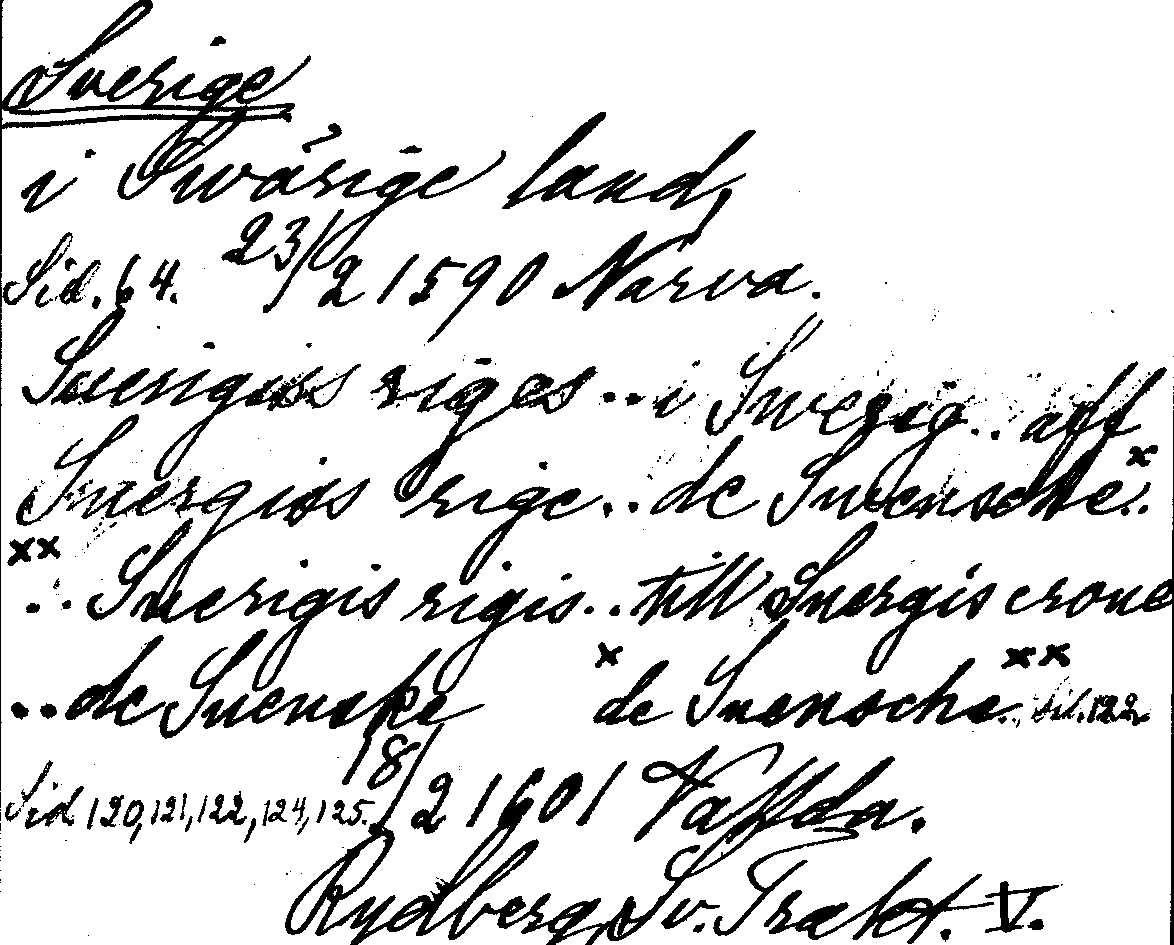 Sverige
i Swärige land,
Sid. 64. 23/2 1590 Narva.
Suerigiss riges .. i Swerig .. aff
Suergies rige .. de Swensche x ..
xx .. Suerigis rigis .. till Suergis crone
.. de Suenske x de Suensche xx .. Sid. 122.
Sid 120, 121, 122, 124, 125. 18/2 1601 Vaffda.
Rydberg, Sv. Trakt. V.